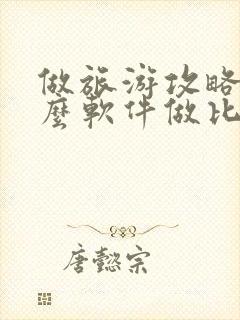 做旅游攻略
麼軟件做比
唐懿宗